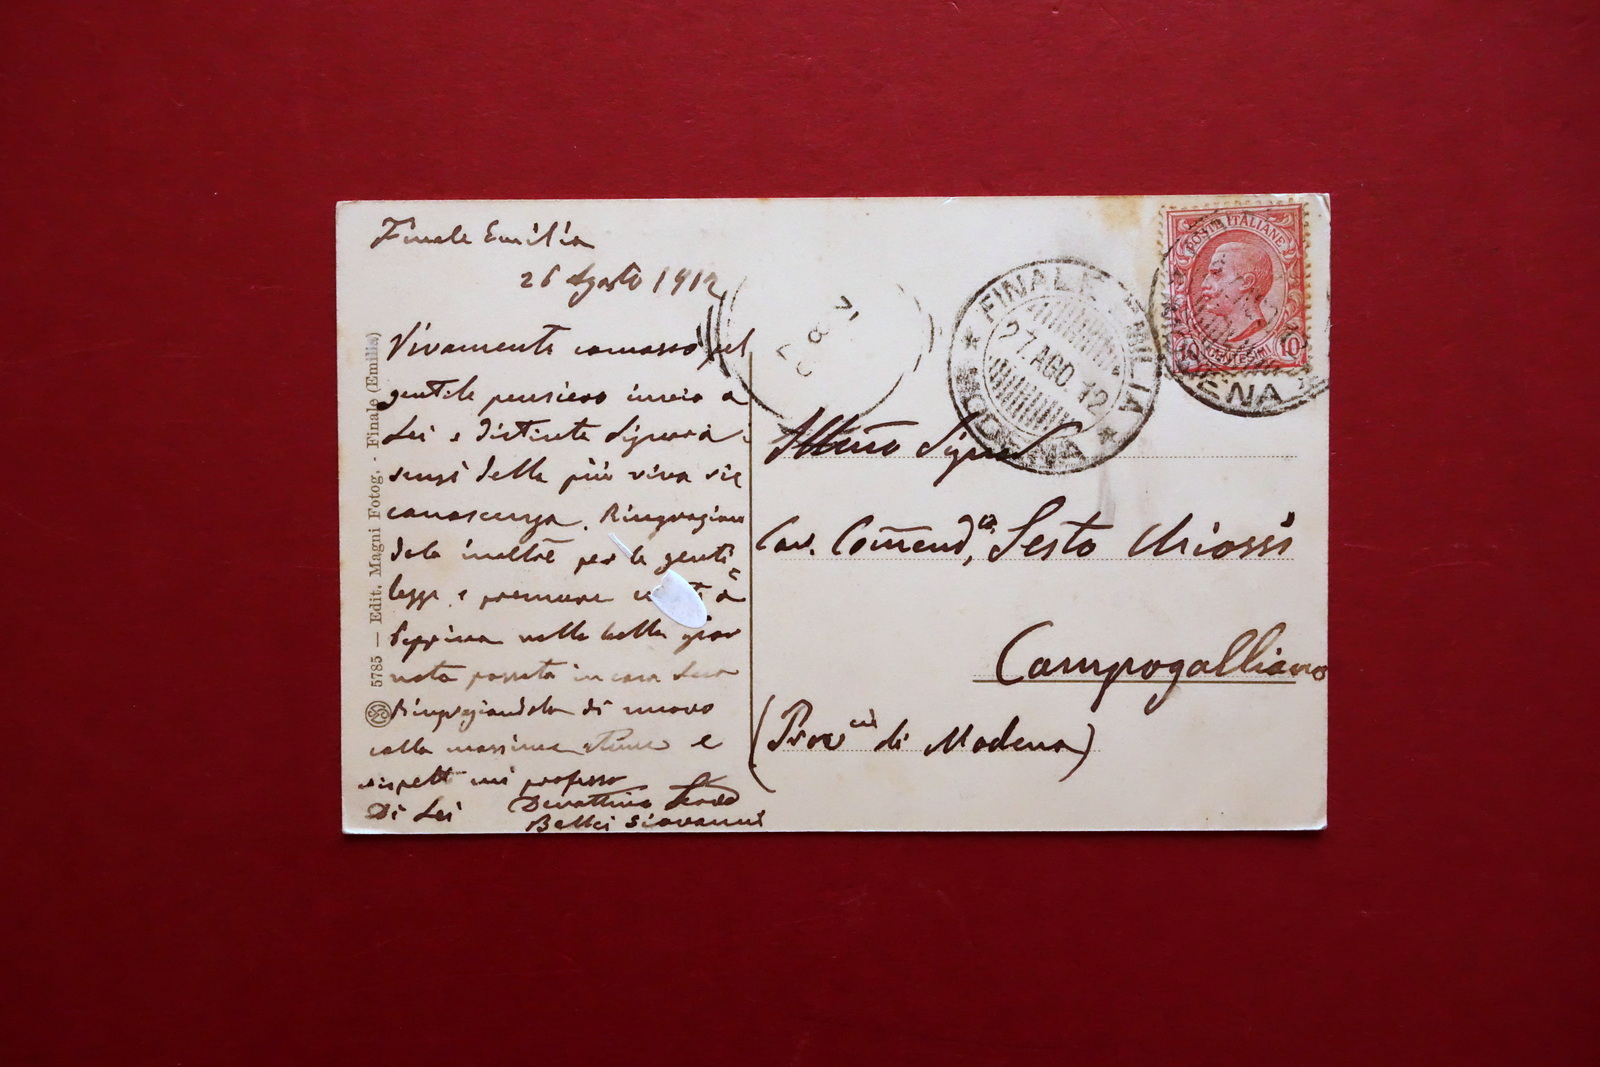 Finale Emilia
26 Agosto 1912
Vivamente comosso pel
gentile pensiero invio a
Lei e distinta Signora
sensi della più viva ric
conoscenza. Ringrazian
dola inoltre per le genti
lezze e premure a
Peppina nella bella gior
nata passata in casa Sua
Ringraziandola di nuovo
colla massima stima e
rispetto mi professo
Di Lei Devottimo
Belluzzi Giovanni
5785 — Edit. Magni Fotog. - Finale (Emilia)
12
8
FINALE EMILIA
27.AGO.12
MODENA
POSTE ITALIANE
10 CENTESIMI 10
MODENA
Illmo Signor
Cav. Commend, Sesto Chiossi
Campogalliano
(Provcia di Modena)